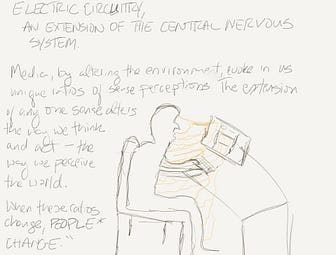 ELECTRIC CIRCUITRY,
AN EXTENSION OF THE CENTRAL NERVOUS
SYSTEM.
Media, by altering the environment, evoke in us
unique ratios of sense perceptions. The extension
of any one sense alters
the way we think
and act – the
way we perceive
the world.
When these ratios
change, PEOPLE*
CHANGE."